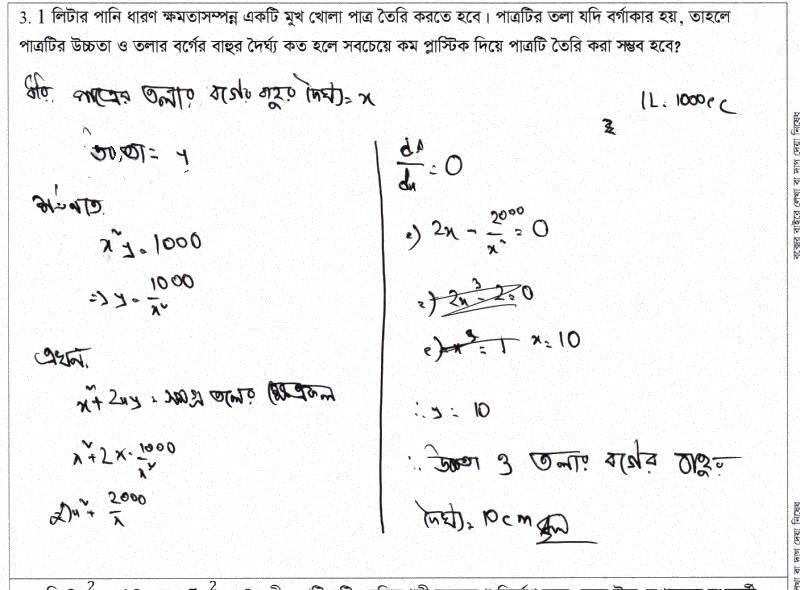 3. 1 লিটার পানি ধারণ ক্ষমতাসম্পন্ন একটি মুখ খোলা পাত্র তৈরি করতে হবে। পাত্রটির তলা যদি বর্গাকার হয়, তাহলে
পাত্রটির উচ্চতা ও তলার বর্গের বাহুর দৈর্ঘ্য কত হলে সবচেয়ে কম প্লাস্টিক দিয়ে পাত্রটি তৈরি করা সম্ভব হবে?
ধরি, পাত্রের তলার বর্গের বাহুর দৈর্ঘ্য = x
1L = 1000cc
উচ্চতা = y
x²y = 1000
⇒ y = 1000/x²
এখন,
x² + 2xy = সমগ্র তলের ক্ষেত্রফল
x² + 2x · 1000/x²
⇒ x² + 2000/x
dA/dx = 0
⇒ 2x - 2000/x² = 0
x = 10
∴ y = 10
∴ উচ্চতা ও তলার বর্গের বাহুর
দৈর্ঘ্য = 10cm
বক্সের বাইরে লেখা বা দাগ দেয়া নিষেধ
লেখা বা দাগ দেয়া নিষেধ